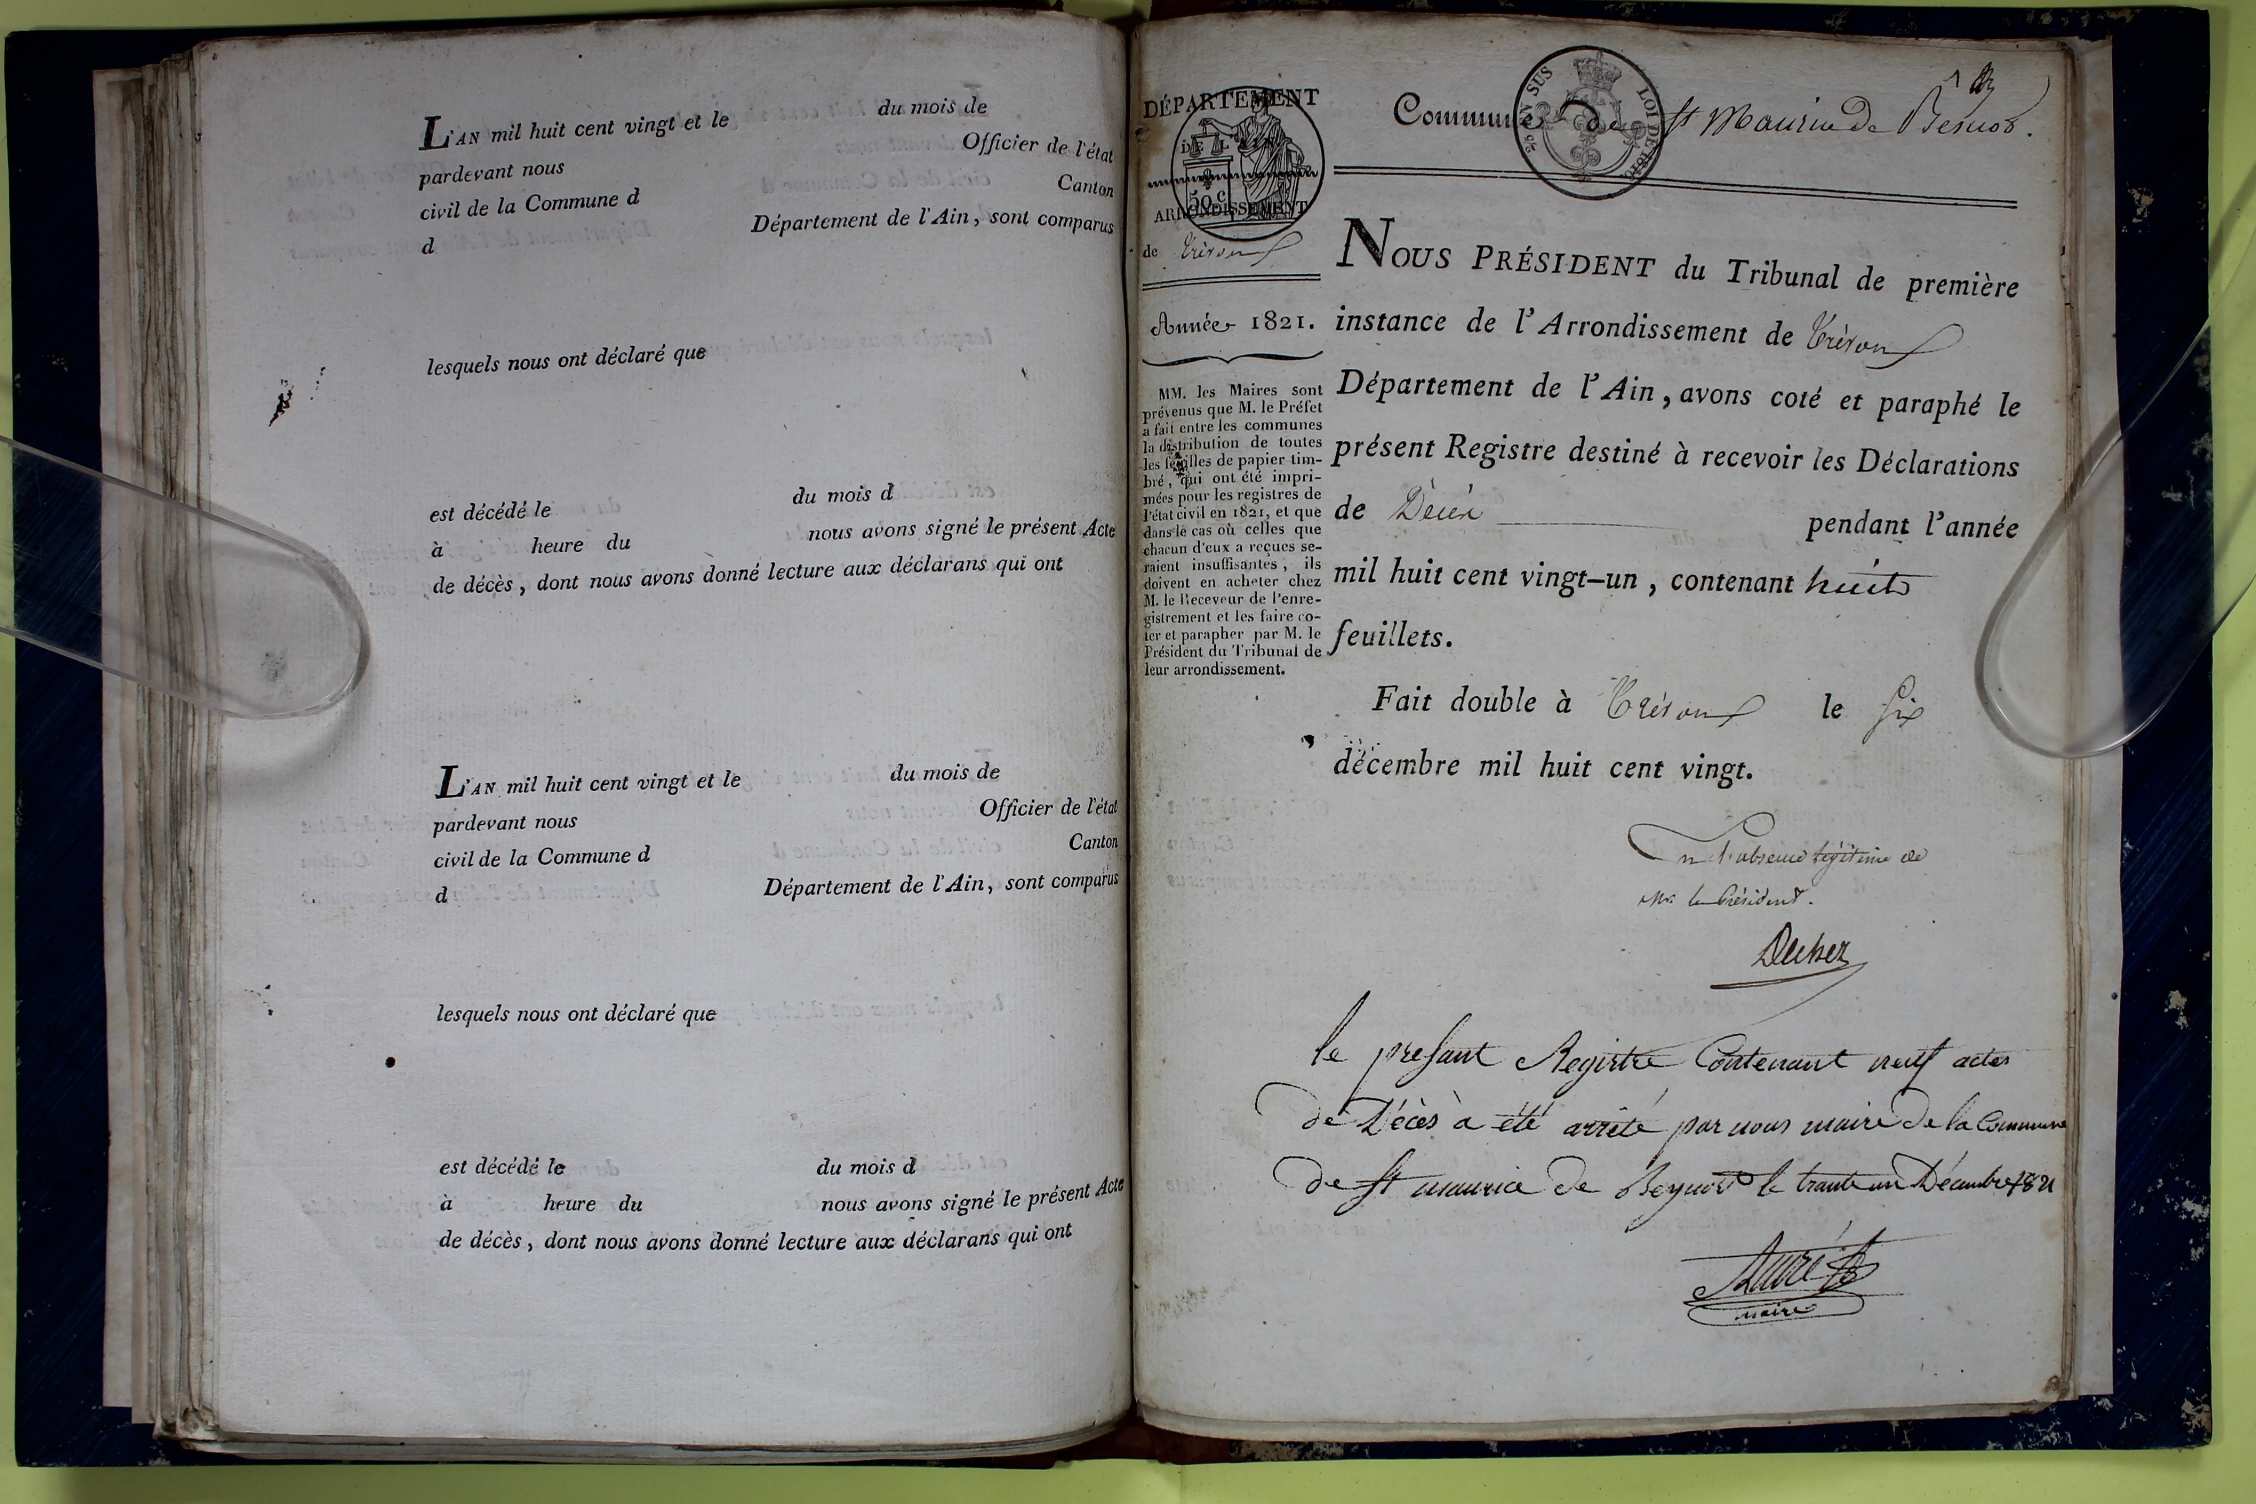 L'AN mil huit cent vingt et le du mois de
pardevant nous Officier de l'état
civil de la Commune d Canton
d Département de l'Ain, sont comparus
lesquels nous ont déclaré que
est décédé le du mois d
à heure du nous avons signé le présent Acte
de décès, dont nous avons donné lecture aux déclarans qui ont
L'AN mil huit cent vingt et le du mois de
pardevant nous Officier de l'état
civil de la Commune d Canton
d Département de l'Ain, sont comparus
lesquels nous ont déclaré que
est décédé le du mois d
à heure du nous avons signé le présent Acte
de décès, dont nous avons donné lecture aux déclarans qui ont
DÉPARTEMENT
DE L'AIN
50 c
ARRONDISSEMENT
de Trévoux
Année 1821.
MM. les Maires sont
prévenus que M. le Préfet
a fait entre les communes
la distribution de toutes
les feuilles de papier tim-
bré, qui ont été impri-
mées pour les registres de
l'état civil en 1821, et que
dans le cas où celles que
chacun d'eux a reçues se-
raient insuffisantes, ils
doivent en acheter chez
M. le Receveur de l'enre-
gistrement et les faire co-
ter et parapher par M. le
Président du Tribunal de
leur arrondissement.
Commune de St Maurice de Bésnos.
EN SUS LOI DE 1816
NOUS PRÉSIDENT du Tribunal de première
instance de l'Arrondissement de Trévoux
Département de l'Ain, avons coté et paraphé le
présent Registre destiné à recevoir les Déclarations
de Décès pendant l'année
mil huit cent vingt-un, contenant huit
feuillets.
Fait double à Trévoux le six
décembre mil huit cent vingt.
En l'absence légitime de
Mr le Président.
le presant Registre Contenant neuf actes
de Décès à été arrêté par nous maire de la Commune
de St maurice de Beynost le trante un Décembre 1821
maire